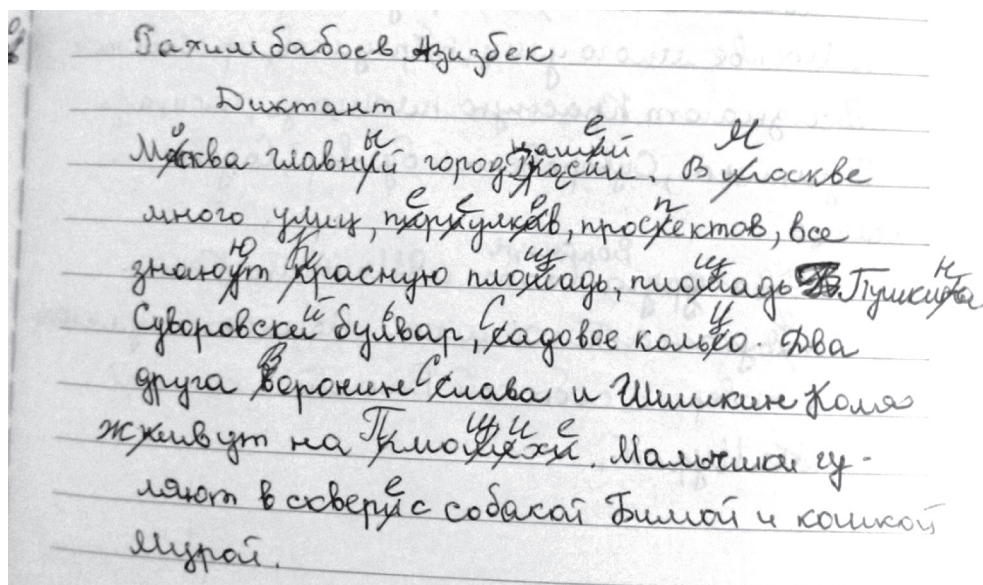 Рахимбабоев Азизбек
Диктант
Москва главный город нашей России. В Москве
много улиц, переулков, проспектов, все
знают Красную площадь, площадь Пушкина
Суворовский бульвар, Садовое кольцо. Два
друга Воронин Слава и Шишкин Коля
живут на Площихе. Мальчики гу-
ляют в сквере с собакой Бимой и кошкой
Мурой.